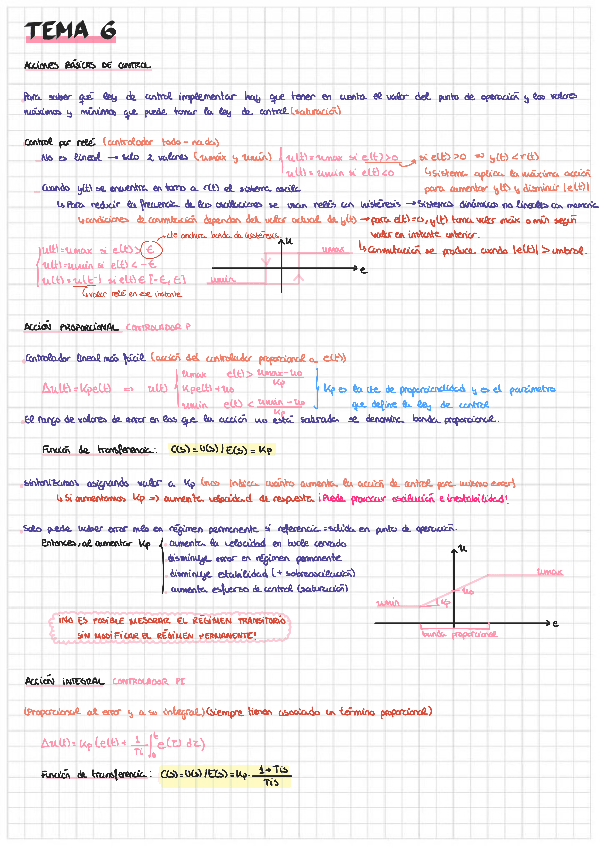 TEMA 6
ACCIONES BÁSICAS DE CONTROL
Para saber qué ley de control implementar hay que tener en cuenta el valor del punto de operación y los valores
máximos y mínimos que puede tomar la ley de control (saturación)
Control por relé (controlador todo-nada)
No es lineal → solo 2 valores (umáx y umín) { u(t)=umax si e(t)>0 → si e(t)>0 ⇒ y(t)<r(t)
u(t)=umin si e(t)<0 ↳ Sistema aplica la máxima acción
para aumentar y(t) y disminuir |e(t)|
Cuando y(t) se encuentra en torno a r(t) el sistema oscila
↳ Para reducir la frecuencia de las oscilaciones se usan relés con histéresis → Sistemas dinámicos no lineales con memoria
↳ condiciones de conmutación dependen del valor actual de y(t) → para e(t)=0, y(t) toma valor máx o mín según
valor en instante anterior.
↳ Conmutación se produce cuando |e(t)| > umbral.
cte anchura banda de histéresis
u(t)=umax si e(t)>ε
u(t)=umin si e(t)<-ε
u(t)=u(t⁻) si e(t)∈[-ε, ε]
↳ valor relé en ese instante
u
umax
e
umin
ACCIÓN PROPORCIONAL CONTROLADOR P
Controlador lineal más fácil (acción del controlador proporcional a e(t))
Δu(t)=Kpe(t) ⇒ u(t) { umax e(t) > (umax-u0)/Kp
Kpe(t)+u0
umin e(t) < (umin-u0)/Kp
Kp es la cte de proporcionalidad y es el parámetro
que define la ley de control
El rango de valores de error en los que la acción no está saturada se denomina banda proporcional.
Función de transferencia: C(s)=U(s)/E(s)=Kp
Sintonizamos asignando valor a Kp (nos indica cuánto aumenta la acción de control para mismo error)
↳ Si aumentamos Kp => aumenta velocidad de respuesta ¡Puede provocar oscilación e inestabilidad!
Solo puede haber error nulo en régimen permanente si referencia = salida en punto de operación.
Entonces, al aumentar Kp { aumenta la velocidad en bucle cerrado
disminuye error en régimen permanente
disminuye estabilidad (+ sobreoscilación)
aumenta esfuerzo de control (saturación)
u
umax
u0
umin
Kp
e
banda proporcional
¡NO ES POSIBLE MEJORAR EL RÉGIMEN TRANSITORIO
SIN MODIFICAR EL RÉGIMEN PERMANENTE!
ACCIÓN INTEGRAL CONTROLADOR PI
(Proporcional al error y a su integral) (siempre tienen asociado un término proporcional)
Δu(t)=Kp(e(t)+ 1/Ti ∫₀ᵗ e(τ) dτ)
Función de transferencia: C(s)=U(s)/E(s)=Kp· (1+Tis)/Tis